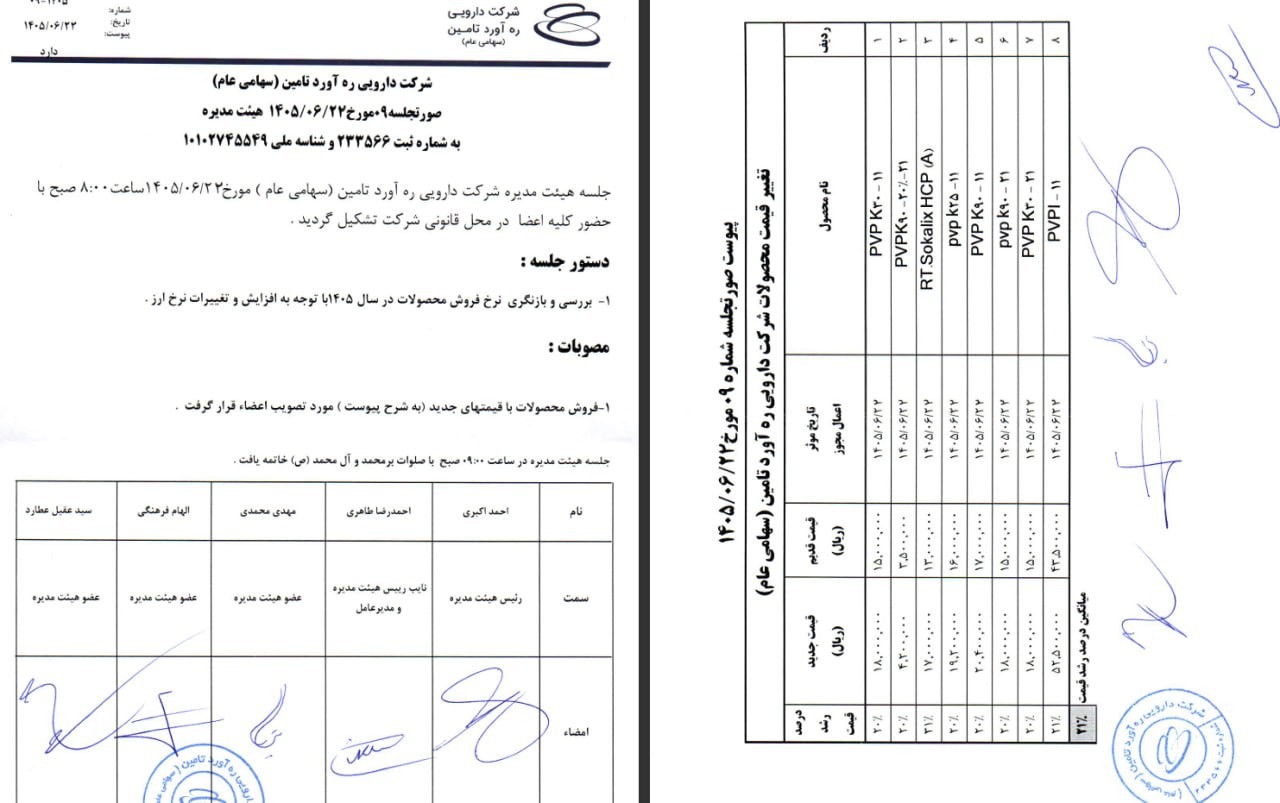 شرکت دارویی
ره آورد تامین
(سهامی عام)
شماره:
تاریخ: ۱۴۰۵/۰۶/۲۳
پیوست: دارد
شرکت دارویی ره آورد تامین (سهامی عام)
صورتجلسه۰۹مورخ۱۴۰۵/۰۶/۲۲ هیئت مدیره
به شماره ثبت ۲۳۳۵۶۶ و شناسه ملی ۱۰۱۰۲۷۴۵۵۴۹
جلسه هیئت مدیره شرکت دارویی ره آورد تامین (سهامی عام ) مورخ۱۴۰۵/۰۶/۲۲ساعت۸:۰۰ صبح با
حضور کلیه اعضا در محل قانونی شرکت تشکیل گردید .
دستور جلسه :
۱- بررسی و بازنگری نرخ فروش محصولات در سال ۱۴۰۵با توجه به افزایش و تغییرات نرخ ارز .
مصوبات :
۱-فروش محصولات با قیمتهای جدید (به شرح پیوست ) مورد تصویب اعضاء قرار گرفت .
جلسه هیئت مدیره در ساعت ۰۹:۰۰ صبح با صلوات برمحمد و آل محمد (ص) خاتمه یافت .
نام احمد اکبری احمدرضا طاهری مهدی محمدی الهام فرهنگی سید عقیل عطارد
سمت رئیس هیئت مدیره نایب رییس هیئت مدیره و مدیرعامل عضو هیئت مدیره عضو هیئت مدیره عضو هیئت مدیره
امضاء
پیوست صورتجلسه شماره ۰۹ مورخ۱۴۰۵/۰۶/۲۲
تغییر قیمت محصولات شرکت دارویی ره آورد تامین (سهامی عام)
ردیف نام محصول تاریخ موثر اعمال مجوز قیمت قدیم (ریال) قیمت جدید (ریال) درصد رشد قیمت
۱ PVP K۳۰ - ۱۱ ۱۴۰۵/۰۶/۲۲ ۱۵,۰۰۰,۰۰۰ ۱۸,۰۰۰,۰۰۰ ۲۰٪
۲ PVPK۹۰ -۲۰٪-۲۱ ۱۴۰۵/۰۶/۲۲ ۳,۵۰۰,۰۰۰ ۴,۲۰۰,۰۰۰ ۲۰٪
۳ RT.Sokalix HCP (A) ۱۴۰۵/۰۶/۲۲ ۱۳,۰۰۰,۰۰۰ ۱۷,۰۰۰,۰۰۰ ۳۱٪
۴ pvp k۲۵ -۱۱ ۱۴۰۵/۰۶/۲۲ ۱۶,۰۰۰,۰۰۰ ۱۹,۲۰۰,۰۰۰ ۲۰٪
۵ PVP K۹۰ - ۱۱ ۱۴۰۵/۰۶/۲۲ ۱۷,۰۰۰,۰۰۰ ۲۰,۴۰۰,۰۰۰ ۲۰٪
۶ pvp k۹۰ - ۲۱ ۱۴۰۵/۰۶/۲۲ ۱۵,۰۰۰,۰۰۰ ۱۸,۰۰۰,۰۰۰ ۲۰٪
۷ PVP K۳۰ - ۲۱ ۱۴۰۵/۰۶/۲۲ ۱۵,۰۰۰,۰۰۰ ۱۸,۰۰۰,۰۰۰ ۲۰٪
۸ PVPI - ۱۱ ۱۴۰۵/۰۶/۲۲ ۴۳,۵۰۰,۰۰۰ ۵۲,۵۰۰,۰۰۰ ۲۱٪
میانگین درصد رشد قیمت ۲۱٪
شرکت دارویی ره آورد تامین ( سهامی عام )